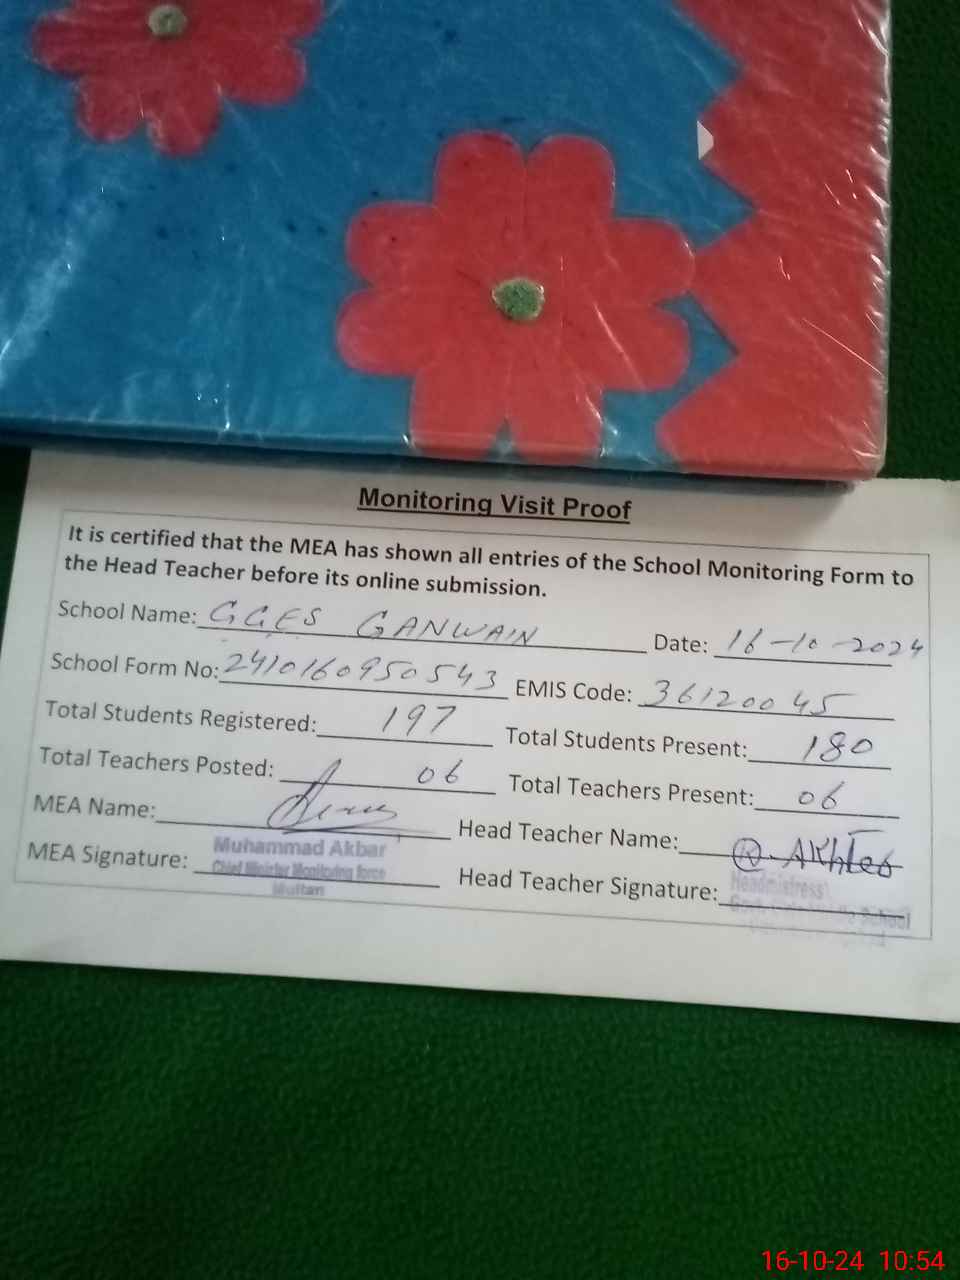 Monitoring Visit Proof
It is certified that the MEA has shown all entries of the School Monitoring Form to
the Head Teacher before its online submission.
School Name: GGES GANWAIN Date: 16-10-2024
School Form No: 2410160950543 EMIS Code: 36120045
Total Students Registered: 197 Total Students Present: 180
Total Teachers Posted: 06 Total Teachers Present: 06
MEA Name: Head Teacher Name:
MEA Signature: Muhammad Akbar Head Teacher Signature:
Chief Minister Monitoring force
Multan
Headmistress
School
16-10-24 10:54